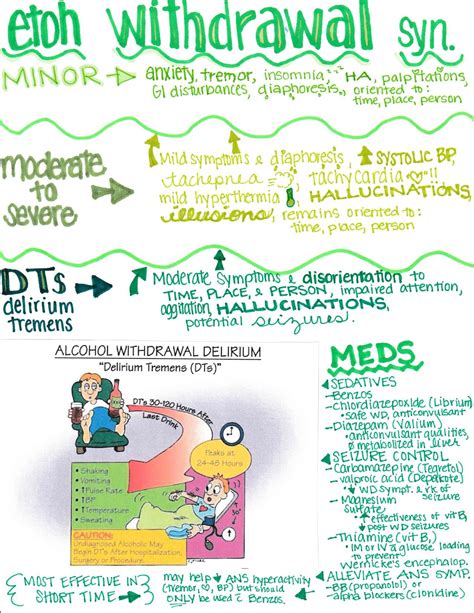 etoh withdrawal syn.
MINOR → anxiety, tremor, insomnia, HA, palpitations,
GI disturbances, diaphoresis, oriented to:
time, place, person
moderate
to
severe
↑ Mild symptoms & diaphoresis, ↑ SYSTOLIC BP,
tachepnea, tachycardia !!
mild hyperthermia, HALLUCINATIONS,
illusions, remains oriented to:
time, place, person
DTs →
delirium
tremens
↑ Moderate symptoms & disorientation to
TIME, PLACE, & PERSON, impaired attention,
aggitation, HALLUCINATIONS,
potential seizures.
ALCOHOL WITHDRAWAL DELIRIUM
"Delirium Tremens (DTs)"
DT's 30-120 Hours After
Last Drink
Peaks at
24-48 Hours
• Shaking
• Vomiting
• ↑Pulse Rate
• ↑BP
• ↑Temperature
• Sweating
CAUTION:
Undiagnosed Alcoholic May
Begin DT's After Hospitalization,
Surgery or Procedure.
MEDS
SEDATIVES
- Benzos
- Chlordiazepoxide (Librium)
• safe WD, anticonvulsant
- Diazepam (Valium)
• anticonvulsant qualities,
metabolized in liver
SEIZURE CONTROL
- Carbamazepine (Tegretol)
- valproic acid (Depakote)
↓ WD sympt. & rk of
seizure
- Magnesium
Sulfate
↑ effectiveness of vit B,
↓ post WD seizures
- Thiamine (vit B1)
• IM or IV & glucose loading
to prevent
Wernicke's encephalop.
ALLEVIATE ANS SYMP
- BB (propanolol) or
alpha blockers (clonidine)
{MOST EFFECTIVE IN
SHORT TIME →}
may help ↓ ANS hyperactivity
(tremor, ♡, BP) but should
ONLY be used c Benzos.